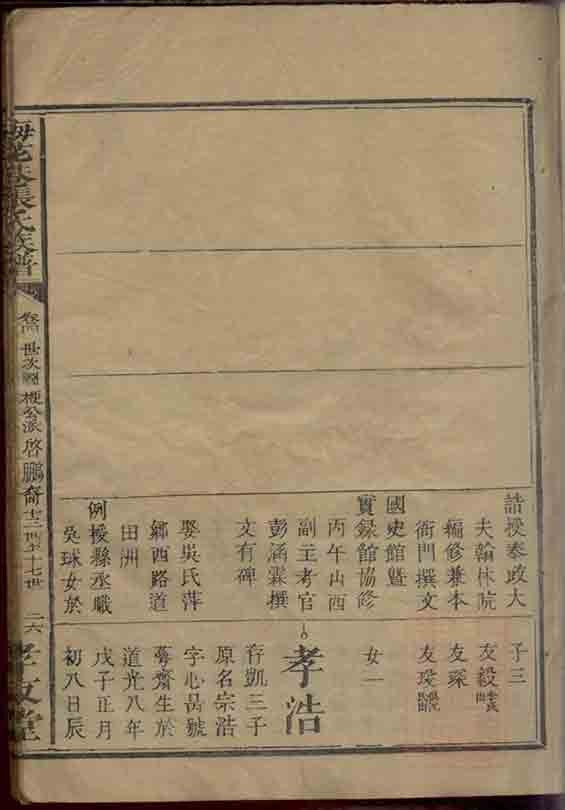 誥授奉政大
夫翰林院
編修兼本
衙門撰文
國史館暨
實録館協修
丙午山西
副主考官
彭涵霖撰
文有碑
娶吳氏萍
鄉西路道
田洲
例授縣丞職
吳球女於
子三
友毅
友琛
友瑗
女一
孝浩
存凱三子
原名宗浩
字心畕號
蕚齋生於
道光八年
戊子正月
初八日辰
梅花巷張氏族譜
世次
梗公派
啓鵬裔
十三世至十七世
二六
孝友堂